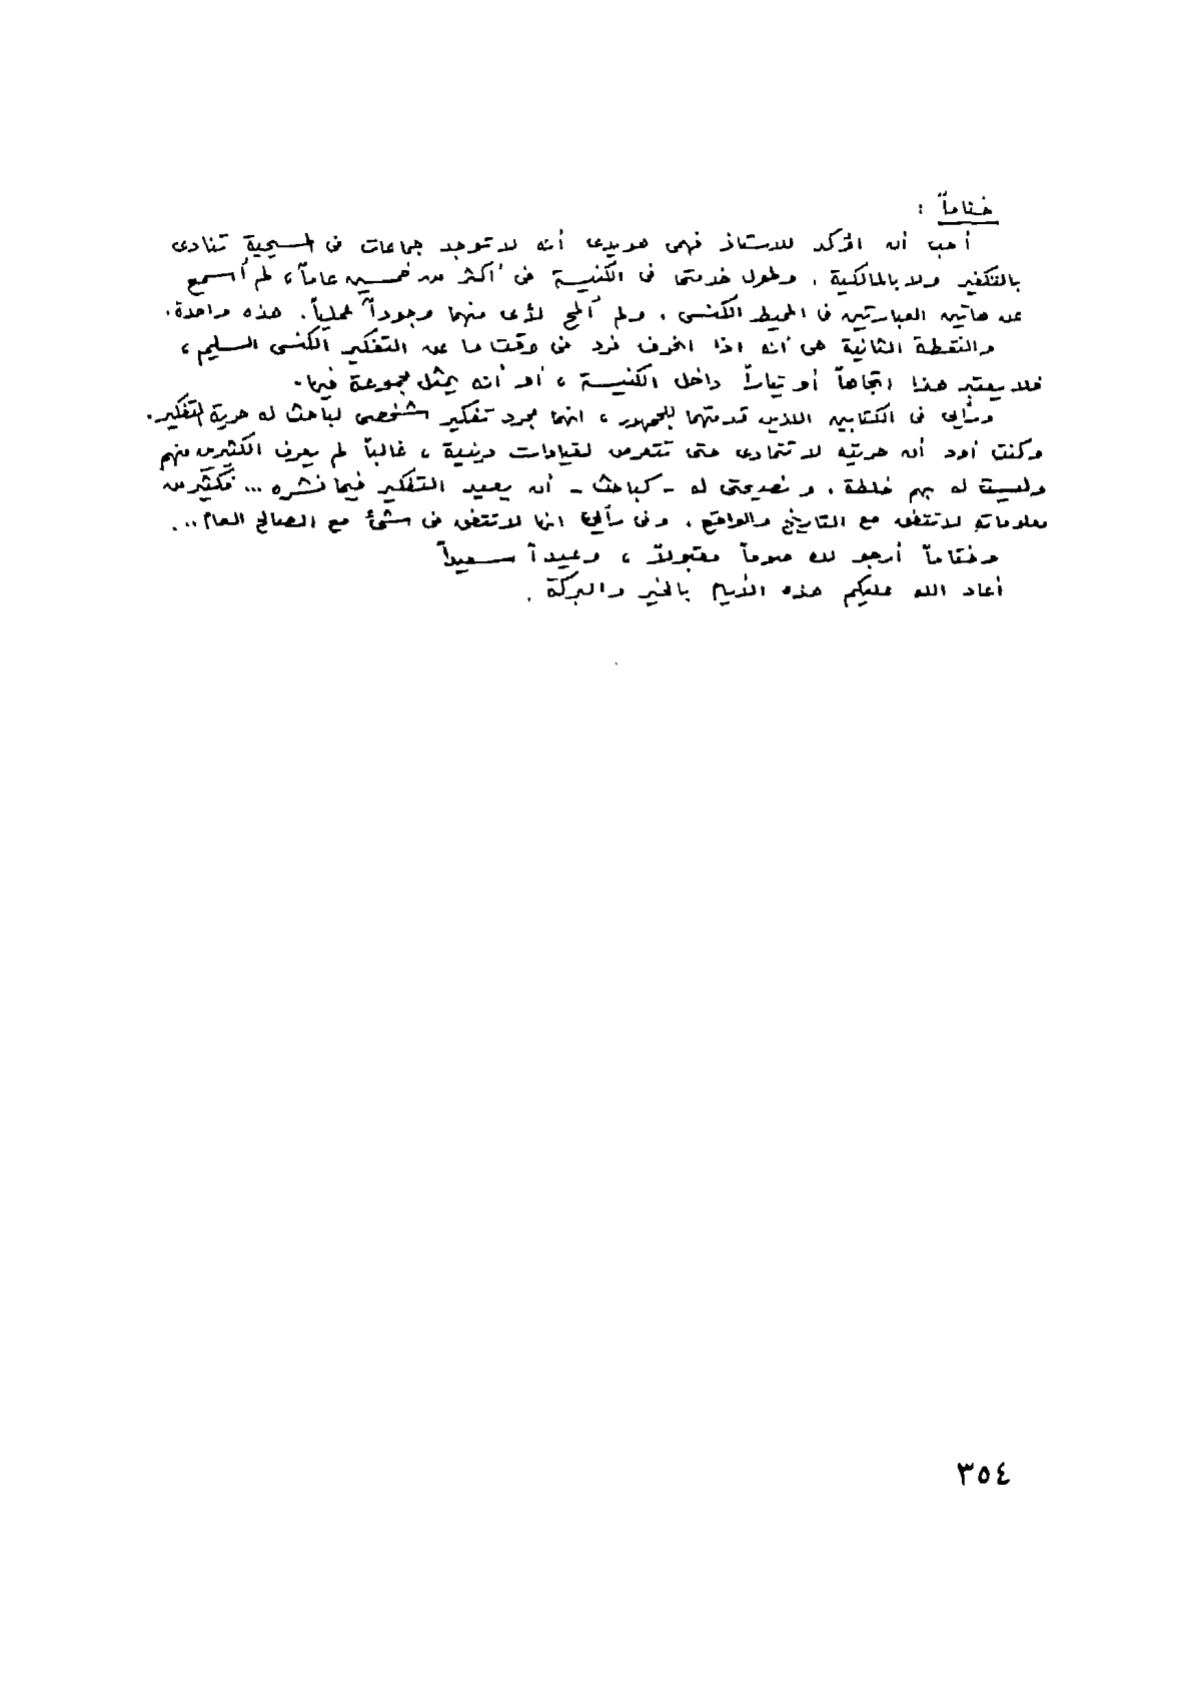 ختاماً :
أحب أن أؤكد للاستاذ فهمى هويدى أنه لا توجد جماعات فى المسيحية تنادى
بالتكفير ولا بالمالكية . وطول خدمتى فى الكنيسة فى أكثر من خمسين عاماً ، لم أسمع
عن هاتين العبارتين فى المحيط الكنسى . ولم ألمح لأى منهما وجوداً عملياً . هذه واحدة .
والنقطة الثانية هى أنه اذا انحرف فرد فى وقت ما عن التفكير الكنسى السليم ،
فلا يعتبر هذا اتجاهاً أو تياراً داخل الكنيسة ، أو أنه يمثل مجموعة فيها .
ورأيى فى الكتابين اللذين قدمتهما للجمهور ، انهما مجرد تفكير شخصى لباحث له حرية التفكير .
وكنت أود أن حريته لا تتمادى حتى تتعرض لقيادات دينية ، غالباً لم يعرف الكثيرين منهم
وليست له بهم خلطة . ونصيحتى له - كباحث - أن يعيد التفكير فيما نشره ... فكثير من
معلوماته لا تتفق مع التاريخ والواقع . وفى رأيى انها لا تتفق فى شئ مع الصالح العام ...
وختاماً أرجو لك صوماً مقبولاً ، وعيداً سعيداً
أعاد الله عليكم هذه الأيام بالخير والبركة .
٣٥٤